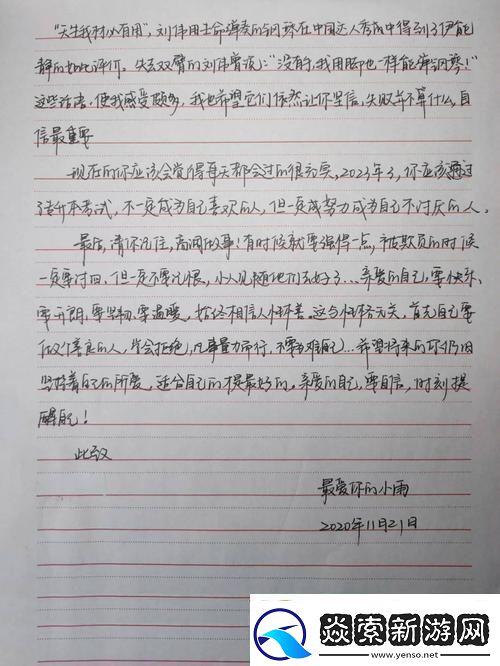 “天生我材必有用”，刘伟用生命弹奏的钢琴在中国达人秀中得到了伊能
静的如此评价。失去双臂的刘伟曾说：“没有手，我用脚也一样能弹钢琴！”
这些话语，使我感受颇多，我也希望它们依然让你坚信，失败并不算什么，自
信最重要
现在的你应该会觉得每天都会过的很充实，2023年了，你应该通过
专升本考试，不一定成为自己喜欢的人，但一定成努力成为自己不讨厌的人。
最后，请你记住，高调做事！有时候就要强得一点，被欺负的时候
一定要讨回，但一定不要记恨，小人见随他们去好了…亲爱的自己，要快乐、
要开朗、要坚韧、要温暖，始终相信人性本善。这与性格无关，首先自己要
做个善良的人，学会拒绝，凡事量力而行，不要为难自己…希望将来的你仍旧
坚持着自己的所爱，适合自己的才是最好的。亲爱的自己，要自信，时刻提
醒自己！
此致
最爱你的小雨
2020年11月21日
焱索新游网
www.yenso.net